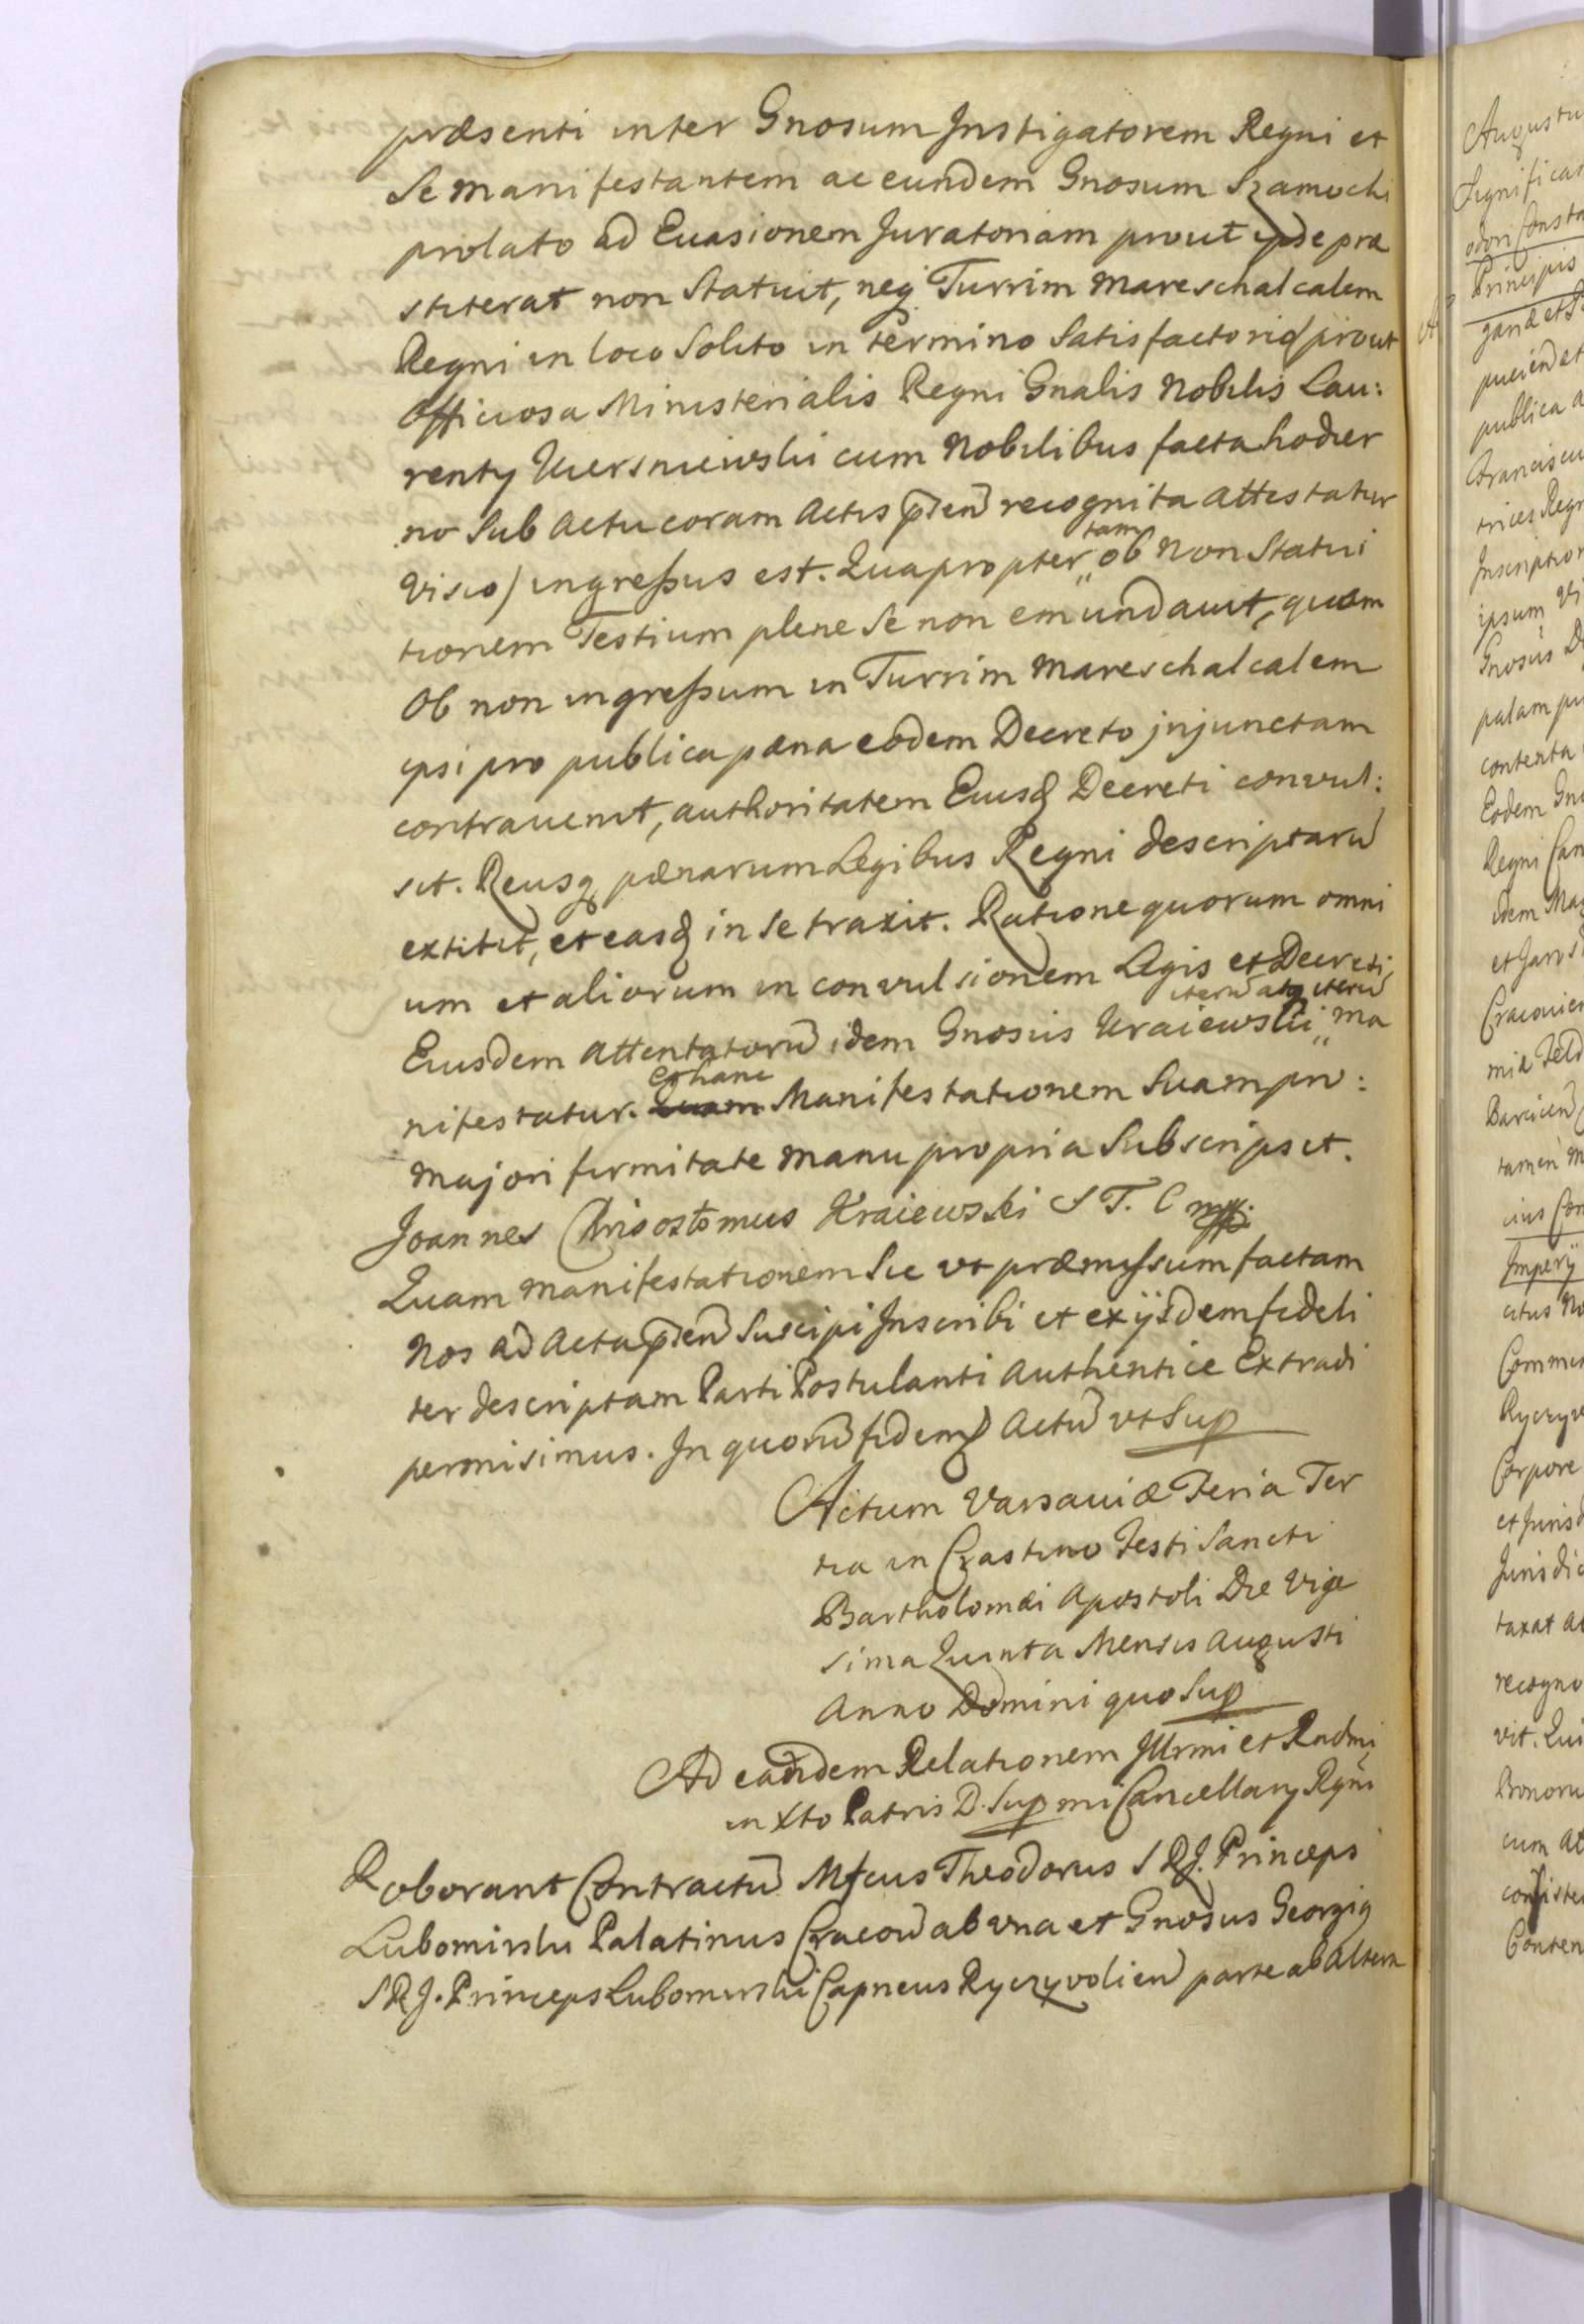 præsenti inter Gnosum Instigatorem Regni et
Se manifestantem ac eundem Gnosum Szamocki
prolato ad Euasionem Juratoriam prout ipse præ
stiterat non Statuit, neq Turrim Mareschalcalem
Regni in loco Solito in termino Satisfactorio (prout
Officiosa Ministerialis Regni Gnalis Nobilis Lau:
renty cum Nobilibus facta hodier
no Sub Actu coram Actis pñtĩb recognita attestatur
Visio) ingressus est. Quapropter tam ob Non Statui
tionem Testium plene Se non emundauit, quam
Ob non ingressum in Turrim Mareschalcalem
ipsi pro publica pæna eodem Decreto injunctam
contrauenit, authoritatem Eiusq Decreti convul:
sit. Reusq pænarum Legibus Regni descriptarũ
extitit, et easq in Se traxit. Ratione quorum omni
um et aliorum in convulsionem Legis et Decreti
Eiusdem attentatorũ idem Gnosus Kraiewski iterũ atq iterũ ma
nifestatur. Et hanc Manifestationem Suam pro:
Majori firmitate manu propria Subscripsit.
Joannes Chrisostomus Kraiewski S T. C mpp.
Quam manifestationem Sic vt præmissum factam
Nos ad Acta Suscipi Inscribi et ex ijsdem fideli
ter descriptam Parti Postulanti Authentice Extradi
permisimus. In quorũ fidem Actũ vt Sup
Actum Varsauiæ Feria Ter
tia in Crastino Festi Sancti
Bartholomæi Apostoli Die Vige
sima Quinta Mensis Augusti
Anno Domini quo Sup
Ad eandem Relationem Illrmi et Rndmi
in Xto Patris D. Supmi Cancellary Rgni
Roborant Contractũ Mfcus Theodorus S R J. Princeps
Lubomirski Palatinus Cracov ab vna et Gnosus Georgig
S R J. Princeps Lubomirski Capneus Ryczyvolien parte ab Altera